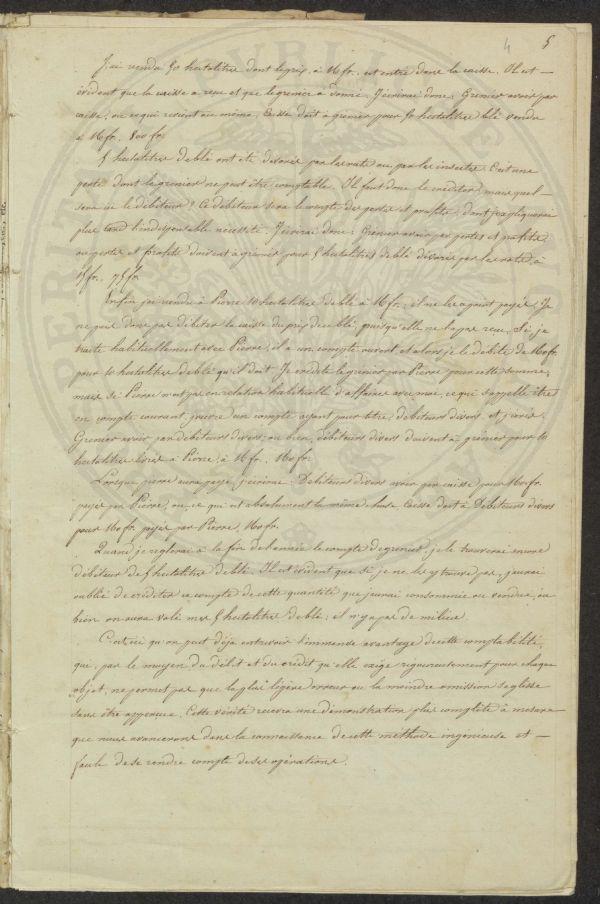 4 5
J'ai vendu 50 hectolitres dont le prix à 16 fr. est entré dans la caisse. Il est
évident que la caisse a reçu et que le grenier a donné. J'écrirai donc: Grenier avoir par
caisse, ou ce qui revient au même, Caisse doit à grenier pour 50 hectolitres blé vendu
à 16 fr. 800 fr.
5 hectolitres de blé ont été dévorés par les rats ou par les insectes. C'est une
perte dont le grenier ne peut être comptable. Il faut donc le créditer, mais quel
sera ici le débiteur? Ce débiteur sera le compte des pertes et profits, dont j'expliquerai
plus tard l'indispensable nécessité. J'écrirai donc: Grenier avoir par pertes et profits
ou pertes et profits doivent à grenier pour 5 hectolitres de blé dévorés par les rats à
15 fr. 75 fr.
Enfin j'ai vendu à Pierre 10 hectolitres de blé à 16 fr., il ne les a point payés. Je
ne puis donc pas débiter la caisse du prix de ce blé, puisqu'elle ne l'a pas reçu. Si je
traite habituellement avec Pierre, il a un compte ouvert, et alors je le débite de 160 fr.
pour 10 hectolitres de blé qu'il doit. Je crédite le grenier par Pierre pour cette somme,
mais si Pierre n'est pas en relation habituelle d'affaires avec moi, ce qui s'appelle être
en compte courant, j'ouvre un compte ayant pour titre, débiteurs divers et j'écris
Grenier avoir par débiteurs divers, ou bien, débiteurs divers doivent à grenier pour 10
hectolitres livrés à Pierre, à 16 fr. 160 fr.
Lorsque pierre aura payé, j'écrirai: Débiteurs divers avoir par caisse pour 160 fr.
payés par Pierre, ou ce qui est absolument la même chose Caisse doit à Débiteurs divers
pour 160 fr. payés par Pierre, 160 fr.
Quand je réglerai à la fin de l'année le compte de grenier, je le trouverai encore
débiteur de 5 hectolitres de blé. Il est évident que si je ne les y trouve pas, j'aurai
oublié de créditer ce compte de cette quantité que j'aurai consommée ou vendue, ou
bien on aura volé mes 5 hectolitres de blé; il n'y a pas de milieu.
C'est ici qu'on peut déjà entrevoir l'immense avantage de cette comptabilité,
que, par le moyen du débit et du crédit qu'elle exige rigoureusement pour chaque
objet, ne permet pas que la plus légère erreur ou la moindre omission se glisse
sans être apperçue. Cette vérité recevra une démonstration plus complète à mesure
que nous avancerons dans la connaissance de cette méthode ingénieuse et
facile de se rendre compte de ses opérations.